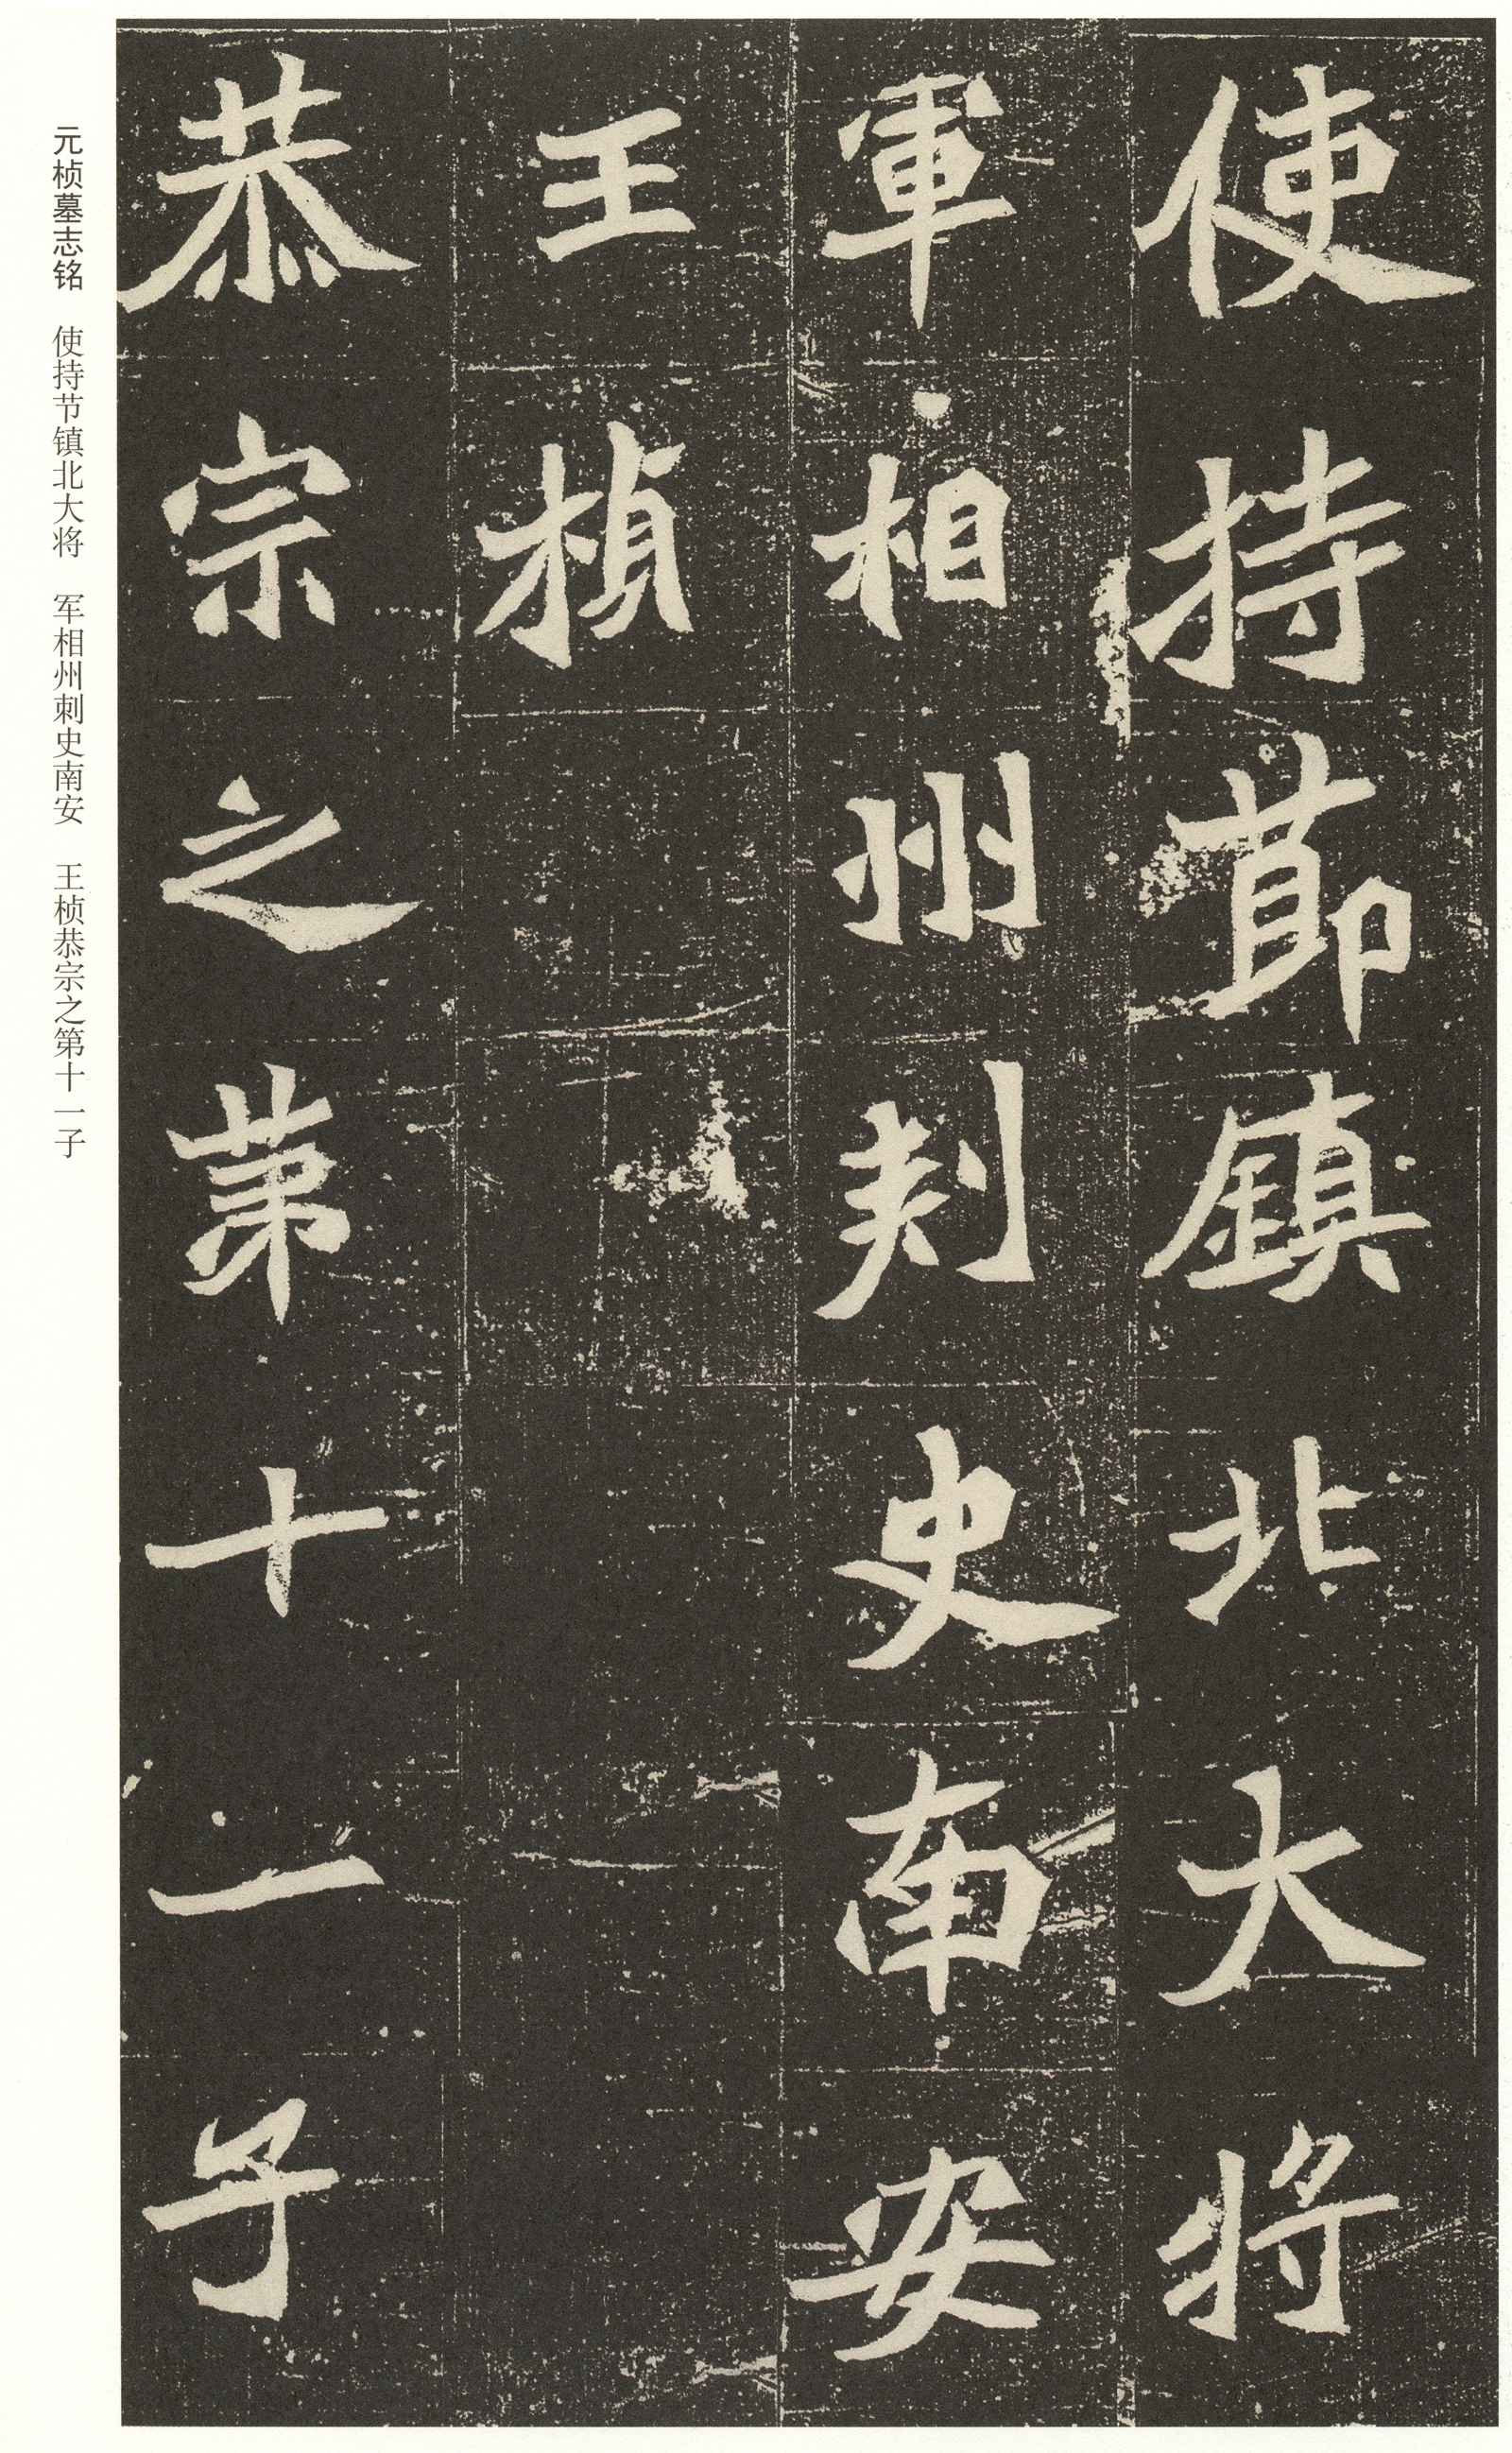 使持節鎮北大将
軍相州刺史南安
王楨
恭宗之第十一子
元桢墓志铭 使持节镇北大将 军相州刺史南安 王桢恭宗之第十一子